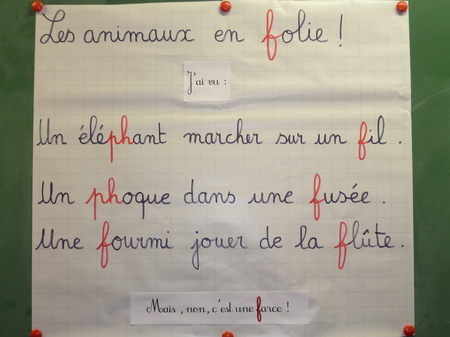 Les animaux en folie !
J'ai vu :
Un éléphant marcher sur un fil .
Un phoque dans une fusée .
Une fourmi jouer de la flûte .
Mais , non , c'est une farce !